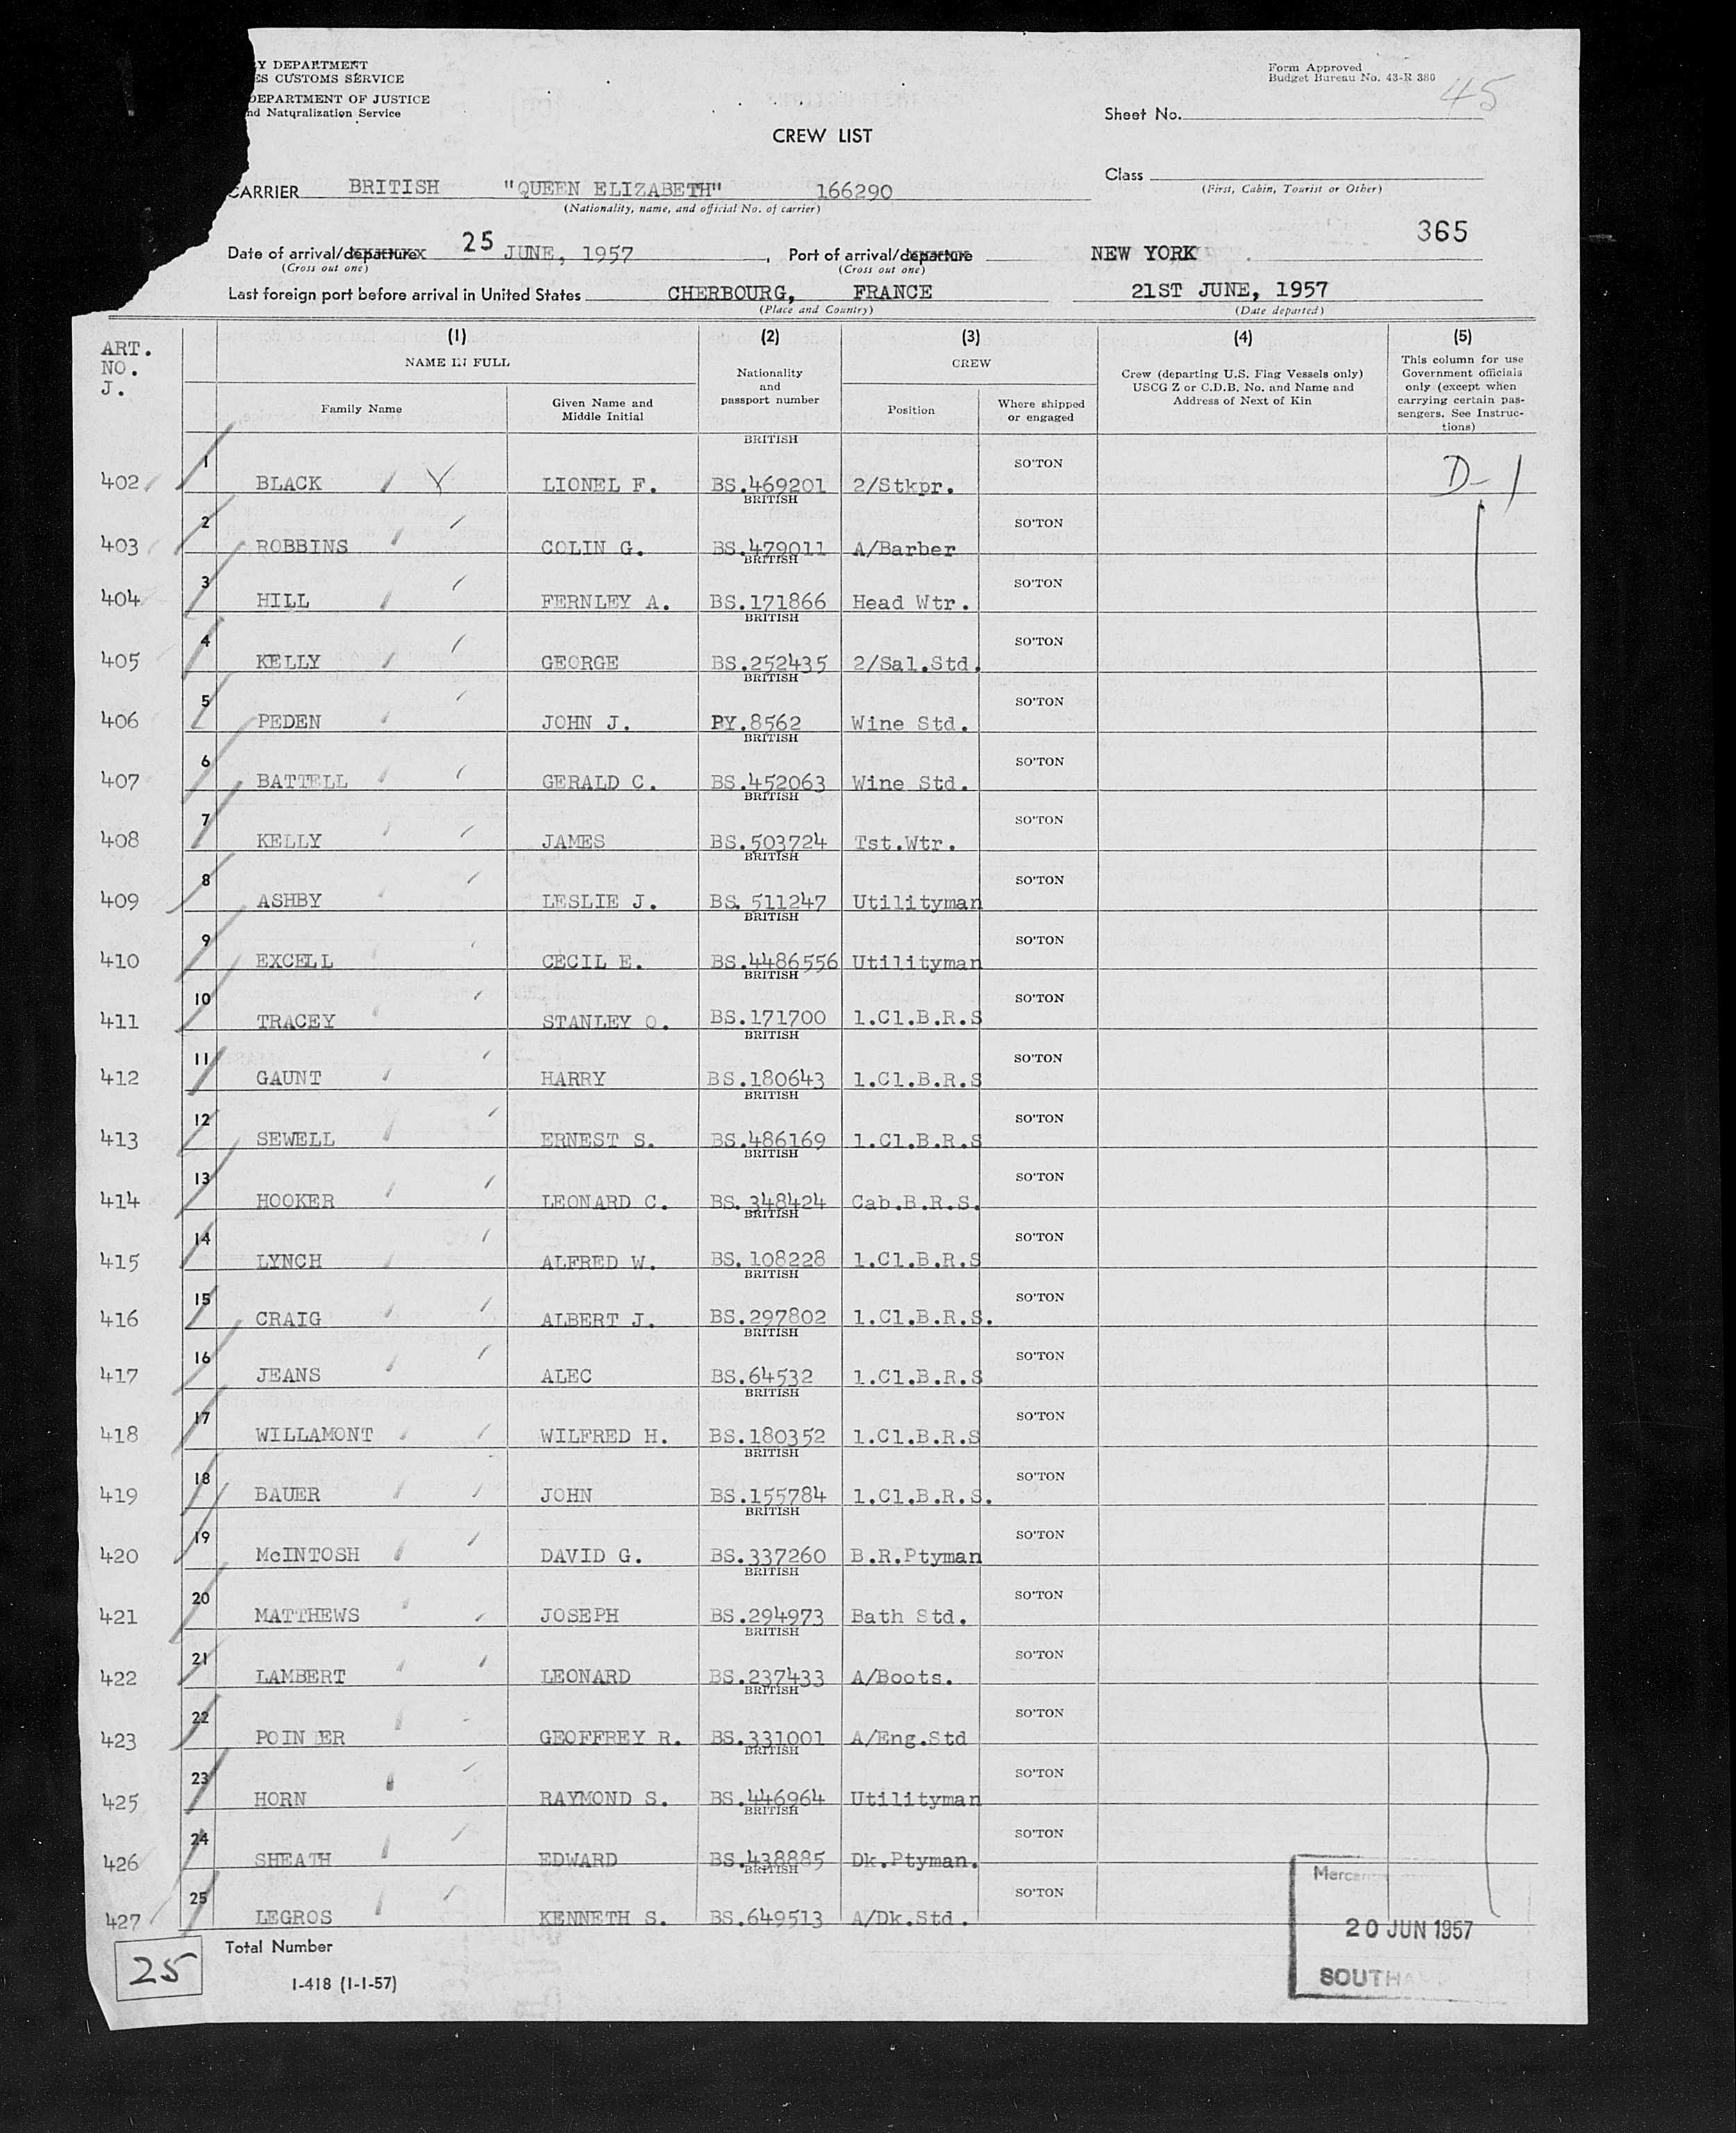 Y DEPARTMENT
ES CUSTOMS SERVICE
DEPARTMENT OF JUSTICE
nd Naturalization Service
Form Approved
Budget Bureau No. 43-R 380
45
Sheet No.
CREW LIST
Class
(First, Cabin, Tourist or Other)
CARRIER BRITISH "QUEEN ELIZABETH" 166290
(Nationality, name, and official No. of carrier)
365
Date of arrival/departure 25 JUNE, 1957, Port of arrival/departure NEW YORK
(Cross out one) (Cross out one)
Last foreign port before arrival in United States CHERBOURG, FRANCE 21ST JUNE, 1957
(Place and Country) (Date departed)
ART. NO. J.
(1) (2) (3) (4) (5)
NAME IN FULL
Family Name
Given Name and Middle Initial
Nationality and passport number
CREW
Position
Where shipped or engaged
Crew (departing U.S. Flag Vessels only) USCG Z or C.D.B. No. and Name and Address of Next of Kin
This column for use Government officials only (except when carrying certain passengers. See Instructions)
402 1 BLACK LIONEL F. BRITISH BS.469201 2/Stkpr. SO'TON D-1
403 2 ROBBINS COLIN G. BRITISH BS.479011 A/Barber SO'TON
404 3 HILL FERNLEY A. BRITISH BS.171866 Head Wtr. SO'TON
405 4 KELLY GEORGE BRITISH BS.252435 2/Sal.Std. SO'TON
406 5 PEDEN JOHN J. BRITISH PY.8562 Wine Std. SO'TON
407 6 BATTELL GERALD C. BRITISH BS.452063 Wine Std. SO'TON
408 7 KELLY JAMES BRITISH BS.503724 Tst.Wtr. SO'TON
409 8 ASHBY LESLIE J. BRITISH BS. 511247 Utilityman SO'TON
410 9 EXCELL CECIL E. BRITISH BS.4486556 Utilityman SO'TON
411 10 TRACEY STANLEY O. BRITISH BS.171700 1.Cl.B.R.S SO'TON
412 11 GAUNT HARRY BRITISH BS.180643 1.Cl.B.R.S SO'TON
413 12 SEWELL ERNEST S. BRITISH BS.486169 1.Cl.B.R.S SO'TON
414 13 HOOKER LEONARD C. BRITISH BS.348424 Cab.B.R.S. SO'TON
415 14 LYNCH ALFRED W. BRITISH BS.108228 1.Cl.B.R.S SO'TON
416 15 CRAIG ALBERT J. BRITISH BS.297802 1.Cl.B.R.S. SO'TON
417 16 JEANS ALEC BRITISH BS.64532 1.Cl.B.R.S SO'TON
418 17 WILLAMONT WILFRED H. BRITISH BS.180352 1.Cl.B.R.S SO'TON
419 18 BAUER JOHN BRITISH BS.155784 1.Cl.B.R.S. SO'TON
420 19 McINTOSH DAVID G. BRITISH BS.337260 B.R.Ptyman SO'TON
421 20 MATTHEWS JOSEPH BRITISH BS.294973 Bath Std. SO'TON
422 21 LAMBERT LEONARD BRITISH BS.237433 A/Boots. SO'TON
423 22 POIN ER GEOFFREY R. BRITISH BS.331001 A/Eng.Std SO'TON
425 23 HORN RAYMOND S. BRITISH BS.446964 Utilityman SO'TON
426 24 SHEATH EDWARD BRITISH BS.438885 Dk.Ptyman. SO'TON
427 25 LEGROS KENNETH S. BRITISH BS.649513 A/Dk.Std. SO'TON
25 Total Number
I-418 (1-1-57)
20 JUN 1957